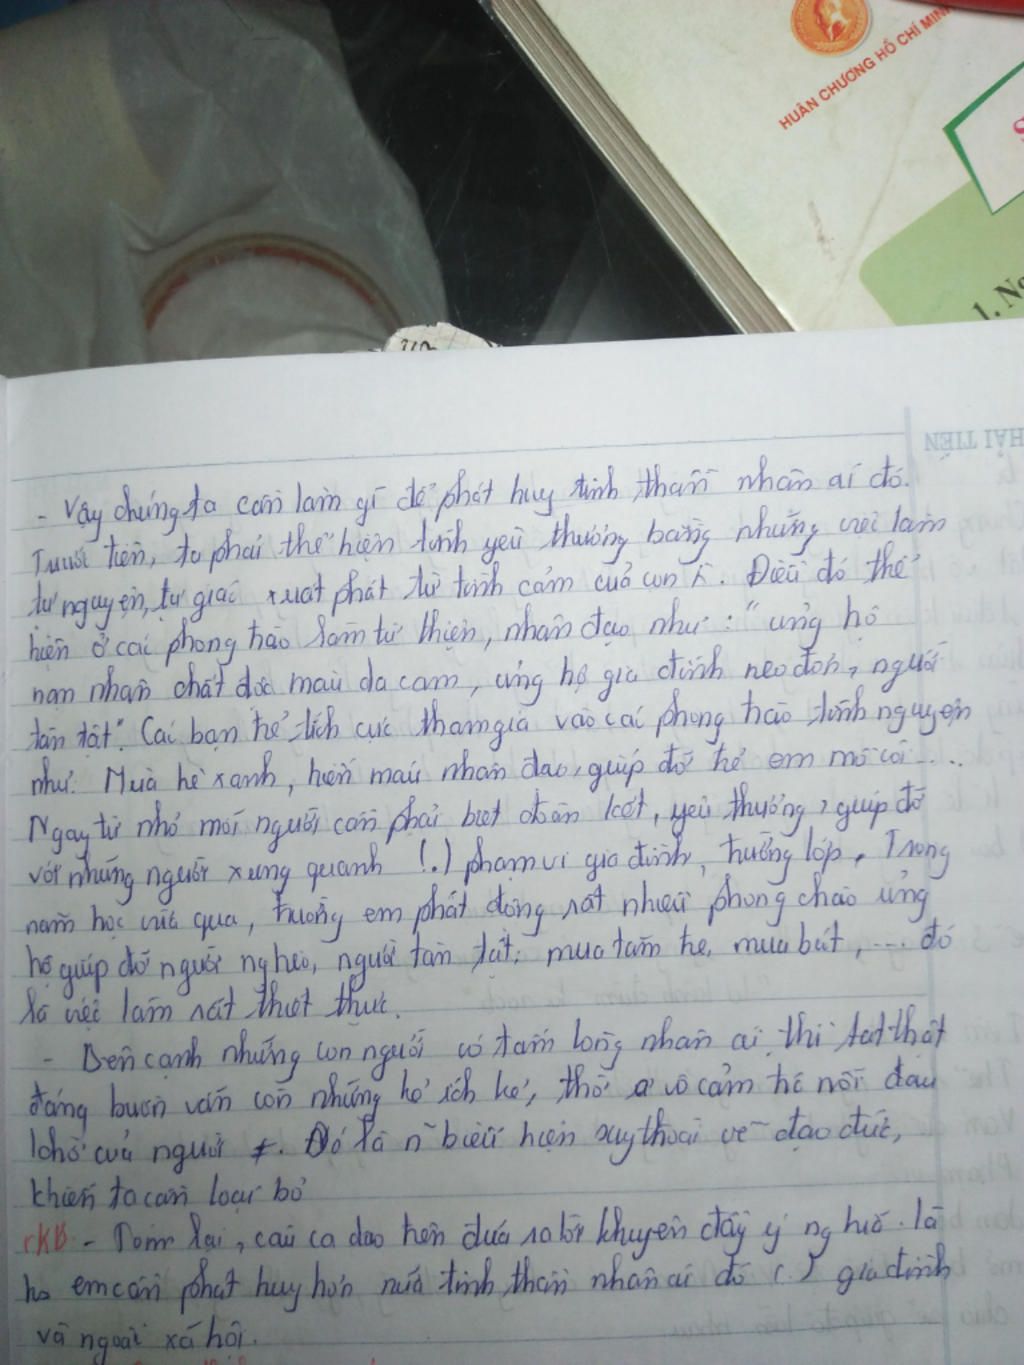 HUÂN CHƯƠNG HỒ CHÍ MINH
1. Ng
HẢI TIẾN
- Vậy chúng ta cần làm gì để phát huy tinh thần nhân ái đó.
Trước tiên, ta phải thể hiện tình yêu thương bằng những việc làm
tự nguyện, tự giác xuất phát từ tình cảm của con ng. Điều đó thể
hiện ở các phong trào làm từ thiện, nhân đạo như: "ủng hộ
nạn nhân chất độc màu da cam, ủng hộ gia đình neo đơn, người
tàn tật". Các bạn trẻ tích cực tham gia vào các phong trào tình nguyện
như: Mùa hè xanh, hiến máu nhân đạo, giúp đỡ trẻ em mồ côi....
Ngay từ nhỏ mỗi người cần phải biết đoàn kết, yêu thương, giúp đỡ
với những người xung quanh (.) phạm vi gia đình, trường lớp. Trong
năm học vừa qua, trường em phát động rất nhiều phong chào ủng
hộ giúp đỡ người nghèo, người tàn tật: mua tăm tre, mua bút, .... đó
là việc làm rất thiết thực.
- Bên cạnh những con người có tấm lòng nhân ái thì thật
đáng buồn vẫn còn những kẻ ích kỉ, thờ ơ vô cảm trc nỗi đau
khổ của người #. Đó là n~ biểu hiện suy thoái về đạo đức,
khiến ta cần loại bỏ
KB - Tóm lại, câu ca dao trên đưa ra lời khuyên đầy ý nghĩa. là
hs em cần phát huy hơn nữa tinh thần nhân ái đó (.) gia đình
và ngoài xã hội.